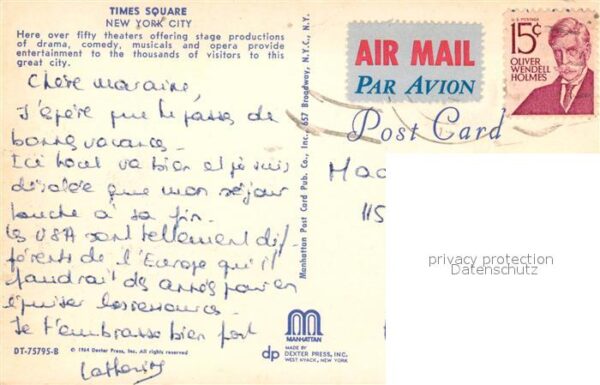 TIMES SQUARE
NEW YORK CITY
Here over fifty theaters offering stage productions
of drama, comedy, musicals and opera provide
entertainment to the thousands of visitors to this
great city.
Chère marraine,
J'espère que tu passes de
bonnes vacances.
Ici tout va bien et je suis
désolée que mon séjour
touche à sa fin.
Les USA sont tellement dif-
férents de l'Europe qu'il
faudrait des années pour en
épuiser les ressources.
Je t'embrasse bien fort
DT-75795-B
© 1964 Dexter Press, Inc. All rights reserved
Manhattan Post Card Pub. Co., Inc., 657 Broadway, N.Y.C., N.Y.
MANHATTAN
dp
MADE BY
DEXTER PRESS, INC.
WEST NYACK, NEW YORK
AIR MAIL
PAR AVION
U.S. POSTAGE
15¢
OLIVER
WENDELL
HOLMES
Post Card
115
privacy protection
Datenschutz